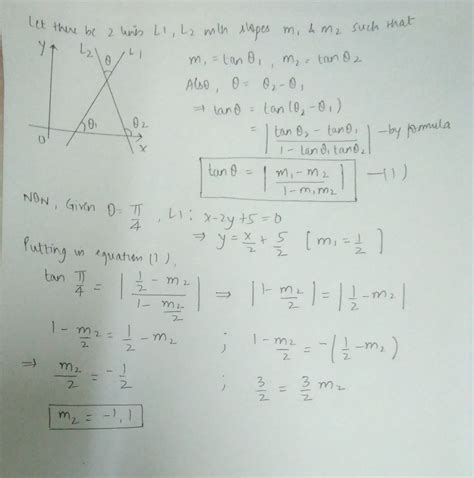 Let there be 2 lines L1, L2 with slopes m1 & m2 such that
y L2 L1
θ
θ1 θ2
O x
m1 = tanθ1, m2 = tanθ2
Also, θ = θ2-θ1
⇒ tanθ = tan(θ2-θ1)
= | (tanθ2 - tanθ1) / (1 - tanθ1 tanθ2) | - by formula
tanθ = | (m1 - m2) / (1 - m1m2) | —(1)
Now, Given θ = π/4, L1: x-2y+5=0
⇒ y = x/2 + 5/2 [m1 = 1/2]
Putting in equation (1),
tan π/4 = | (1/2 - m2) / (1 - m2/2) | ⇒ |1 - m2/2| = |1/2 - m2|
1 - m2/2 = 1/2 - m2 ; 1 - m2/2 = -(1/2 - m2)
⇒ m2/2 = -1/2 ; 3/2 = 3/2 m2
m2 = -1, 1